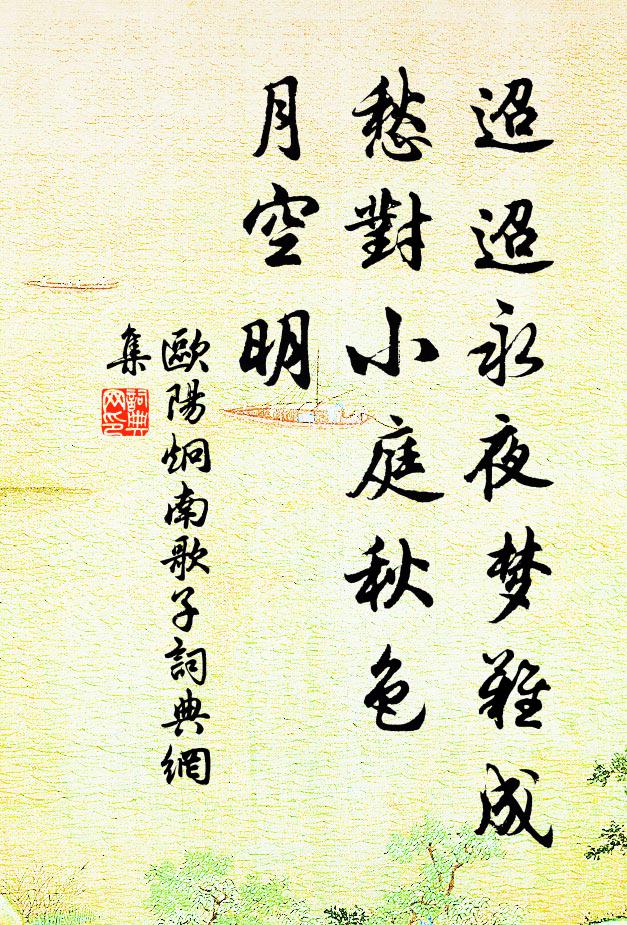 迢迢永夜梦難成
愁對小庭秋色
月空明
歐陽炯南歌子詞典網
集
詞典
网印